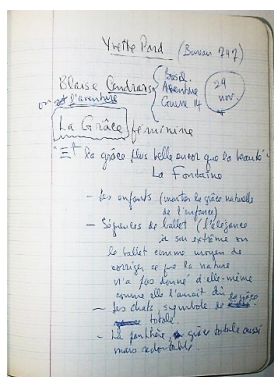 Yvette Pard (Bureau 747)
Blaise Cendrars
Brésil
Aventure
Guerre 14
24 nov.
ou et l'aventure
La Grâce féminine
"Et la grâce plus belle encor que la beauté"
La Fontaine
- Les enfants (montrer la grâce naturelle
de l'enfance)
- Séquences de ballet (l'élégance
à son extrême ou
le ballet comme moyen de
corriger ce que la nature
n'a pas donné d'elle-même
comme elle l'aurait dû
- Les chats symbole de grâce
totale
- La panthère, grâce totale aussi
mais redoutable